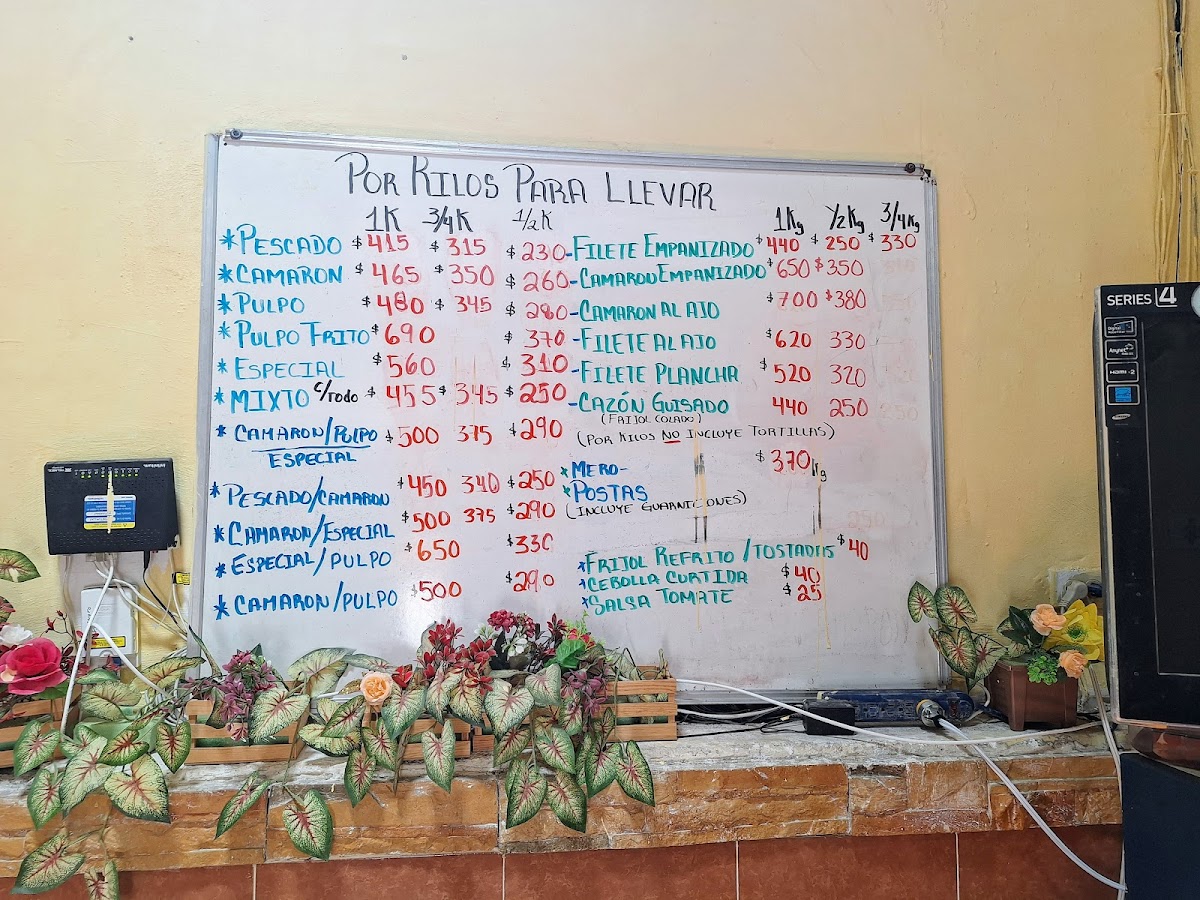 POR KILOS PARA LLEVAR
1K 3/4K 1/2K
*PESCADO $415 $315 $230
*CAMARON $465 $350 $260
*PULPO $480 $345 $280
*PULPO FRITO $690 $370
*ESPECIAL $560 $310
*MIXTO C/TODO $455 $345 $250
*CAMARON/PULPO $500 375 $290
ESPECIAL
*PESCADO/CAMARON $450 340 $250
*CAMARON/ESPECIAL $500 375 $290
*ESPECIAL/PULPO $650 $330
*CAMARON/PULPO $500 $290
1Kg 1/2Kg 3/4Kg
-FILETE EMPANIZADO $440 $250 $330
-CAMARON EMPANIZADO $650 $350
-CAMARON AL AJO $700 $380
-FILETE AL AJO $620 330
-FILETE PLANCHA $520 320
-CAZÓN GUISADO 440 250
(FRIJOL COLADO)
(POR KILOS NO INCLUYE TORTILLAS)
*MERO- $370 Kg
*POSTAS
(INCLUYE GUARNICIONES)
*FRIJOL REFRITO/TOSTADAS $40
*CEBOLLA CURTIDA $40
*SALSA TOMATE $25
SERIES 4